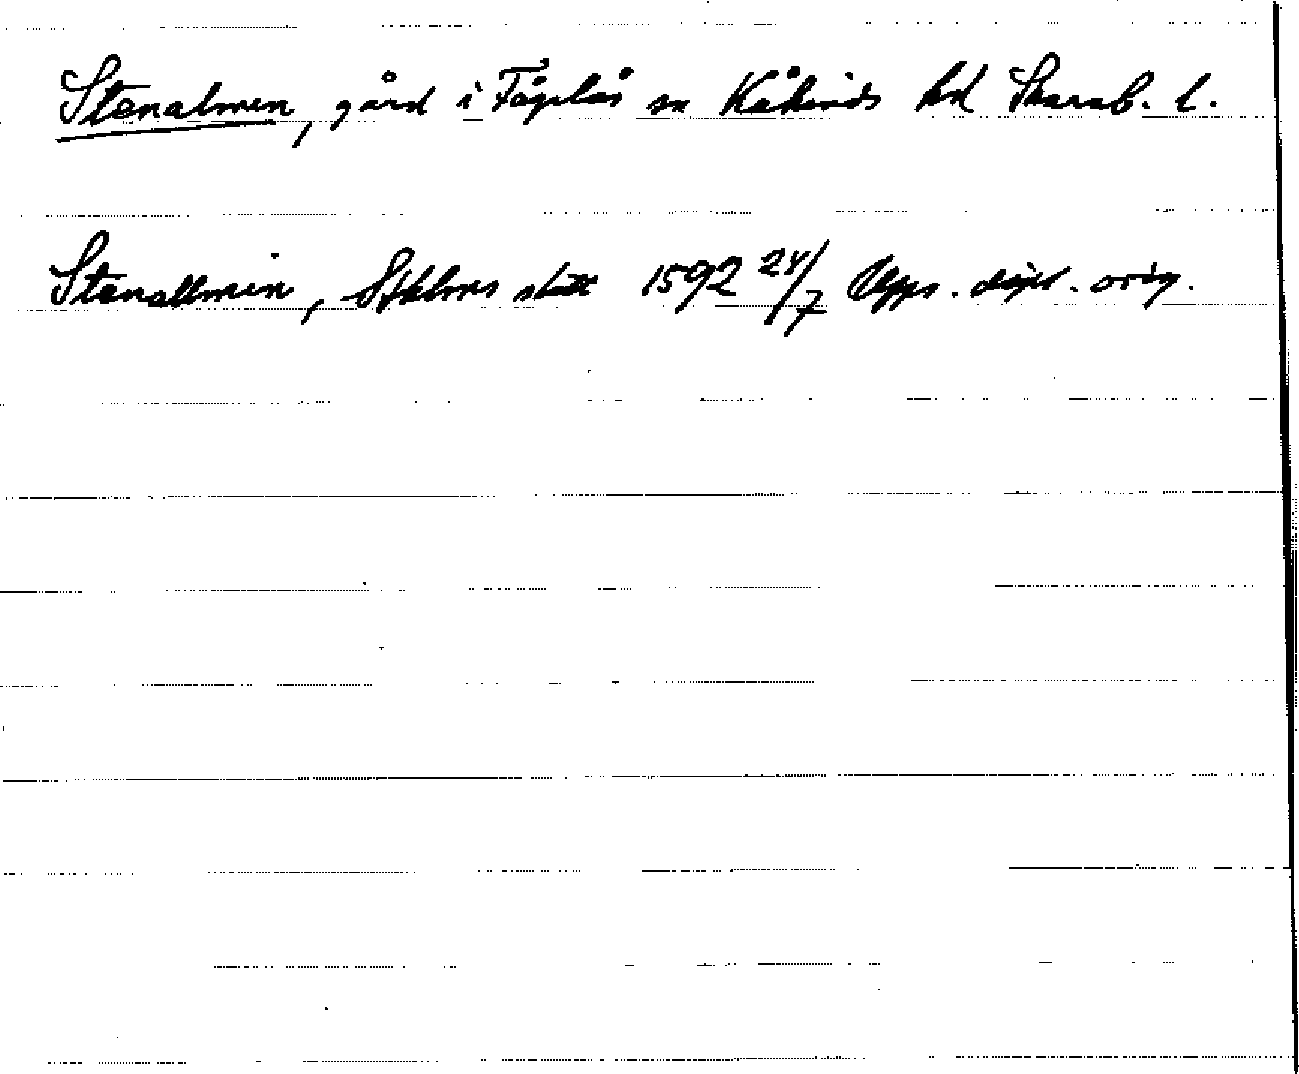 Stenalmen, gård i Fågelås sn Kåkinds hd Skarab. l.
Stenallmen, Sthlms slott 1592 24/7 Upps. dipl. orig.